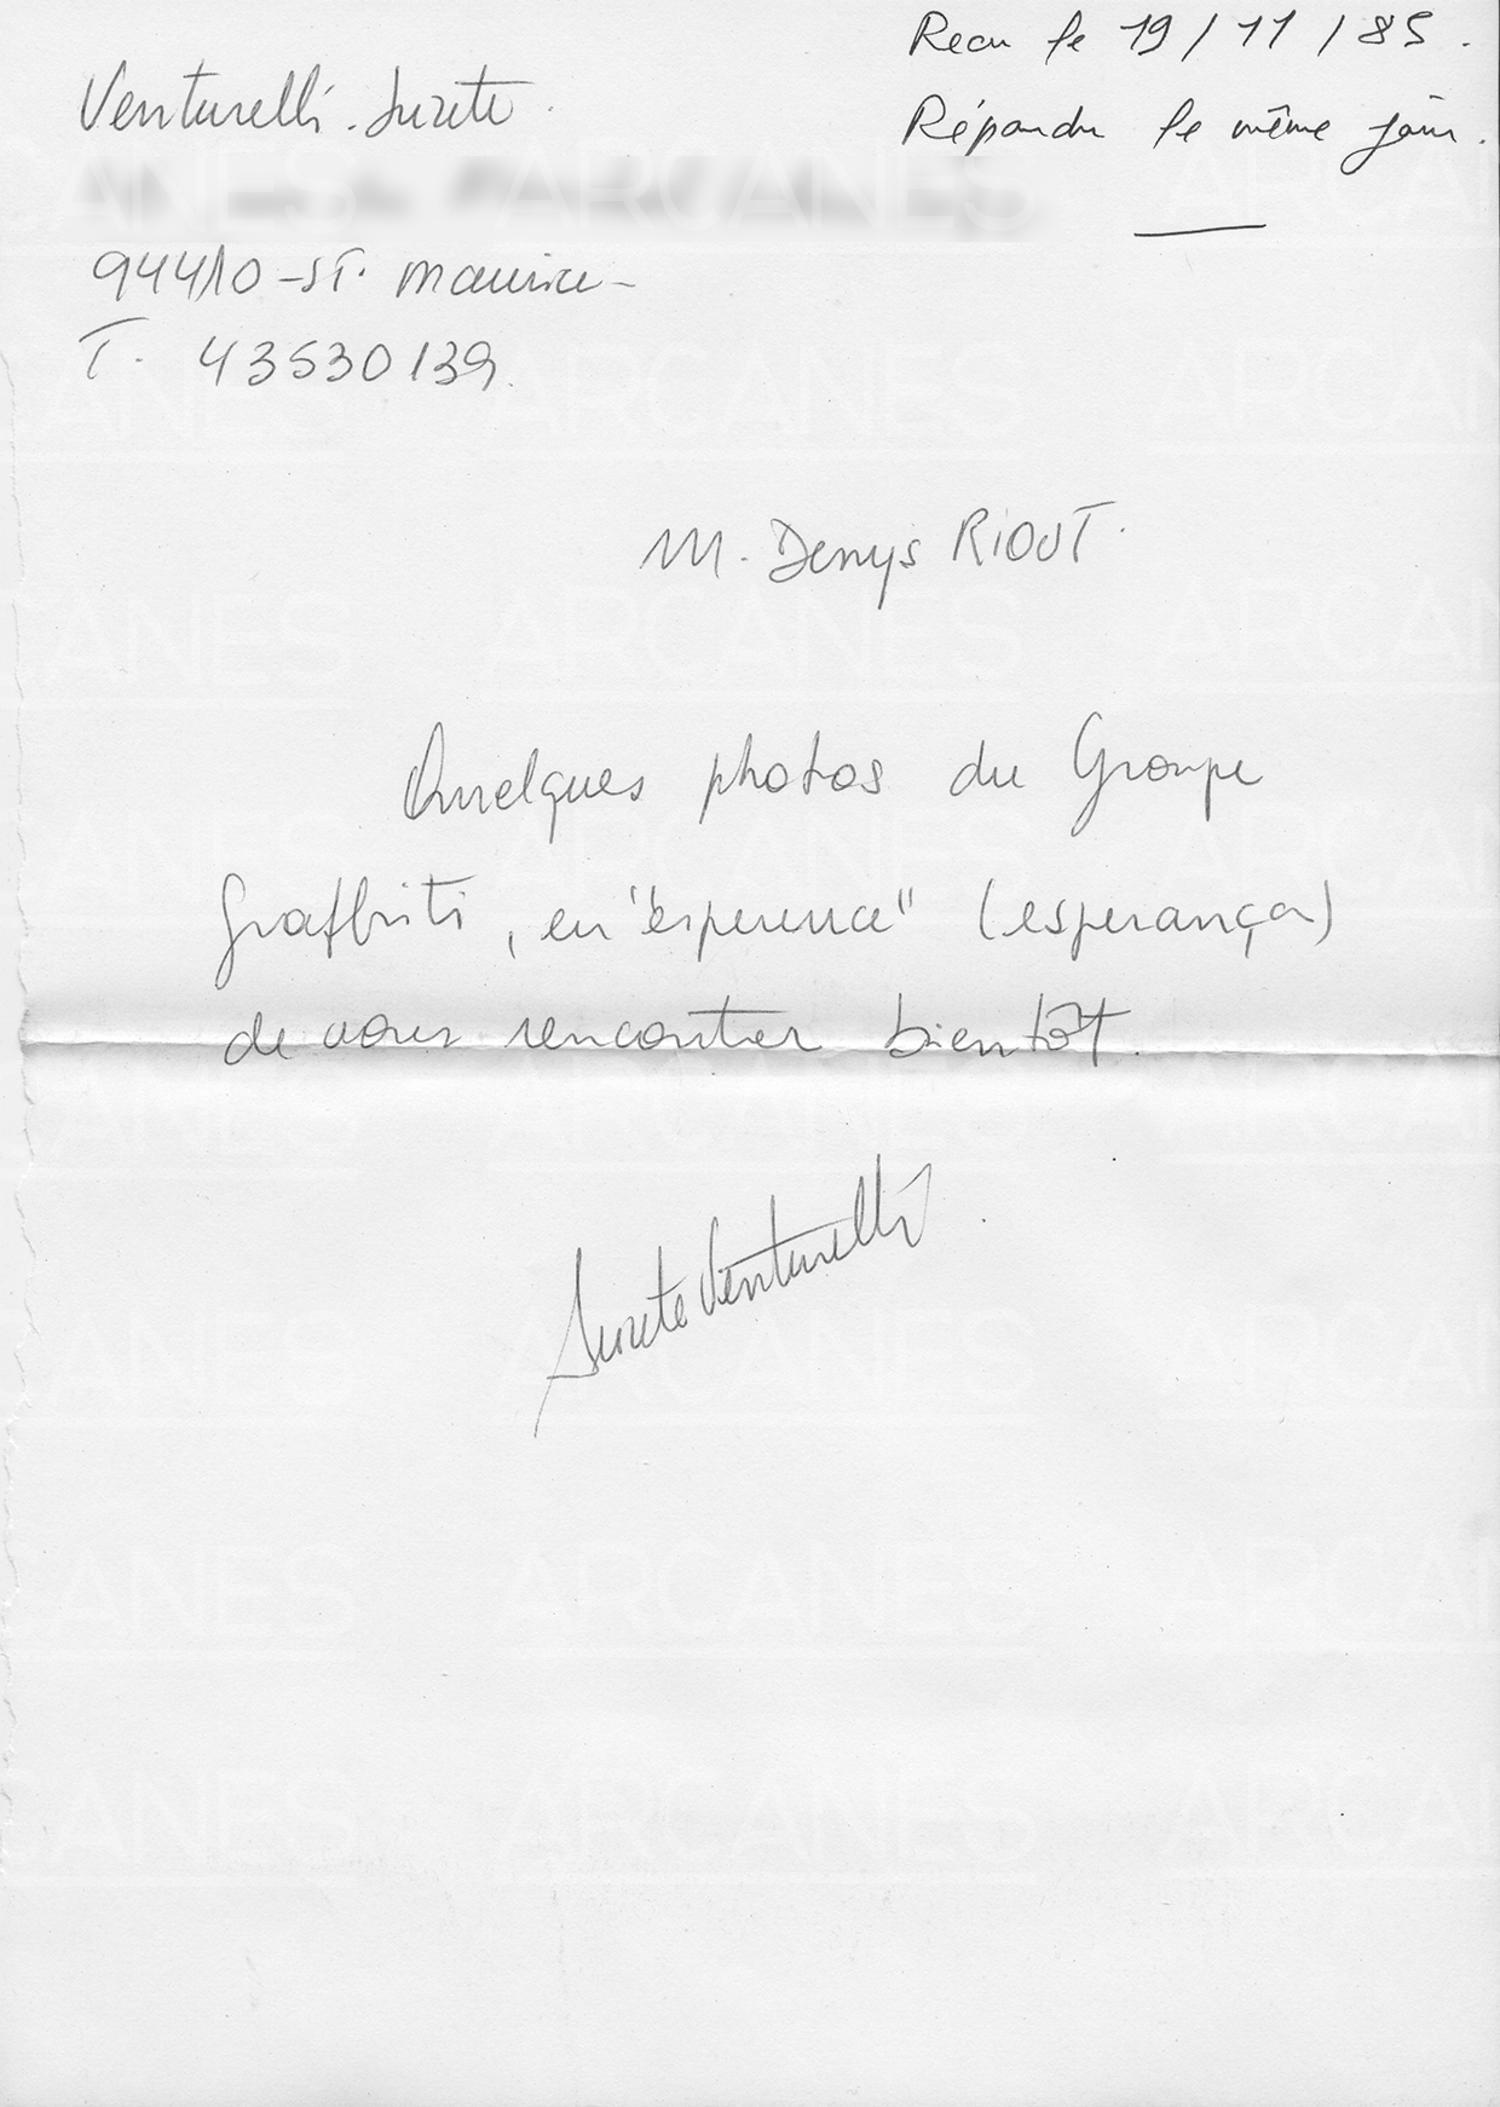 Recu le 19/11/85.
Répondu le même jour.
Venturelli. Suzete.
94410 - ST. Maurice -
T. 43530139.
M. Denys RIOUT.
Quelques photos du Groupe
graffiti, en "esperence" (esperança)
de vous rencontrer bientôt.
Suzete Venturelli.
ARCANES